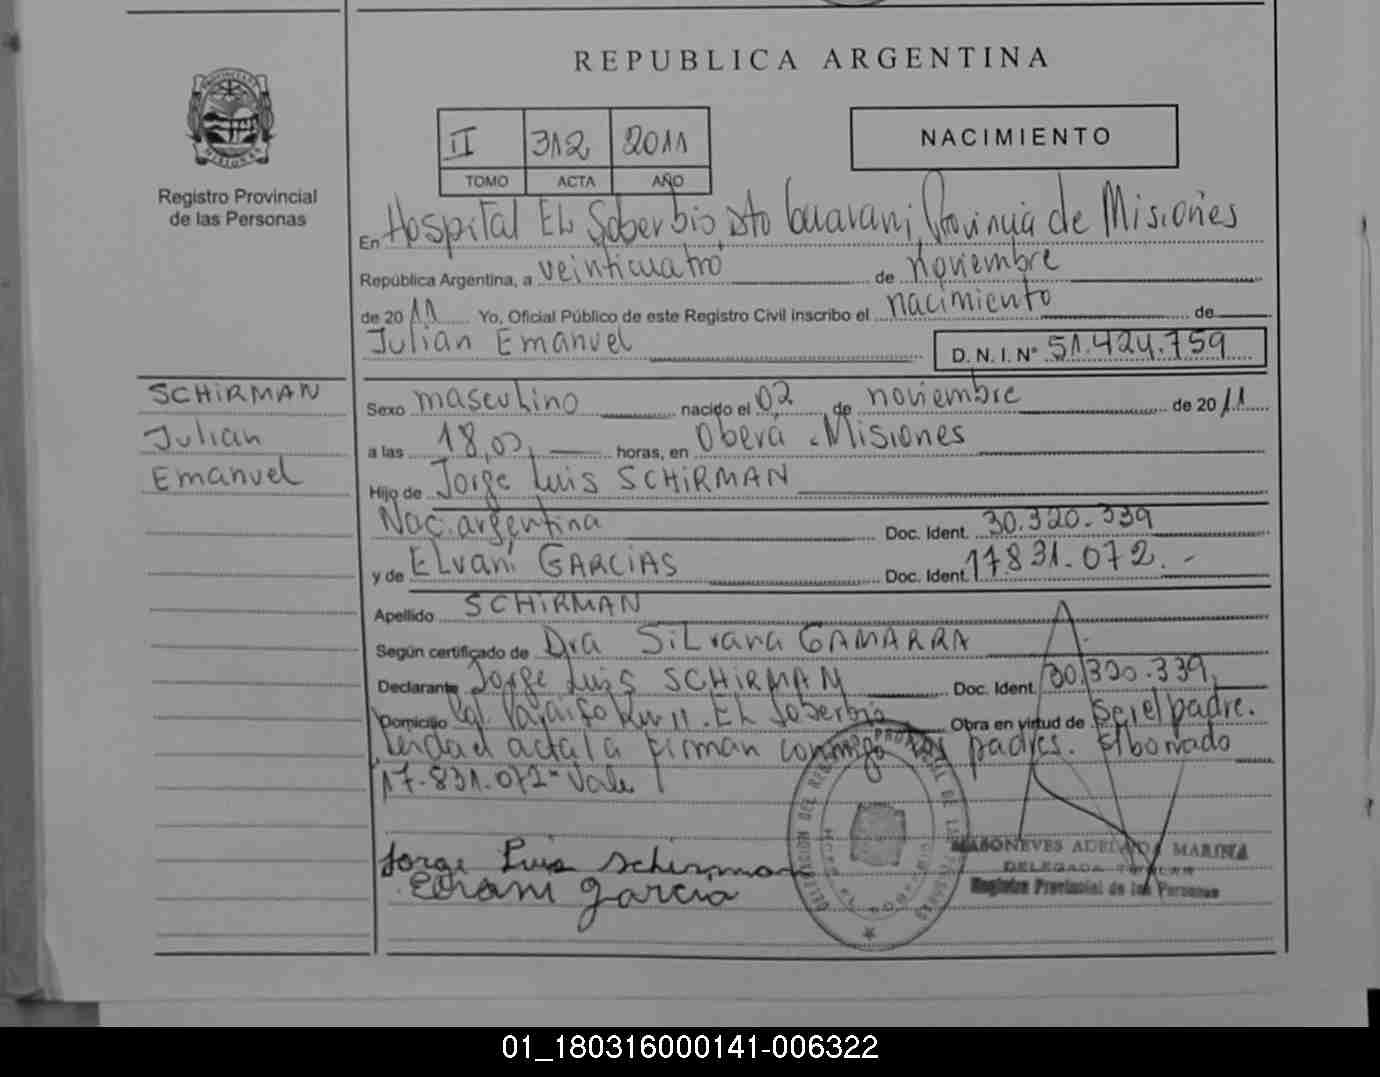 REPUBLICA ARGENTINA
PROVINCIA DE MISIONES
Registro Provincial
de las Personas
II 312 2011
TOMO ACTA AÑO
NACIMIENTO
En Hospital El Soberbio, dto Guarani, Provincia de Misiones
República Argentina, a veinticuatro de noviembre
de 2011 Yo, Oficial Público de este Registro Civil inscribo el nacimiento de
Julian Emanuel D.N.I. Nº 51.424.759
SCHIRMAN
Julian
Emanuel
Sexo masculino nacido el 02 de noviembre de 2011
a las 18,00 horas, en Oberá - Misiones
Hijo de Jorge Luis SCHIRMAN
Nac. argentina Doc. Ident. 30.320.339
y de Elvani GARCIAS Doc. Ident. 17831.072.-
Apellido SCHIRMAN
Según certificado de Dra Silvana GAMARRA
Declarante Jorge Luis SCHIRMAN Doc. Ident. 30.320.339
Domicilio Km 11. El Soberbio Obra en virtud de ser el padre.
acta la firman conmigo los padres.
17.831.072 - Vale
Jorge Luis Schirman
Elvani garcia
DELEGACION DEL REGISTRO PROVINCIAL DE LAS PERSONAS
ADELAIDA MARINA
DELEGADA TITULAR
Registro Provincial de las Personas
01_180316000141-006322